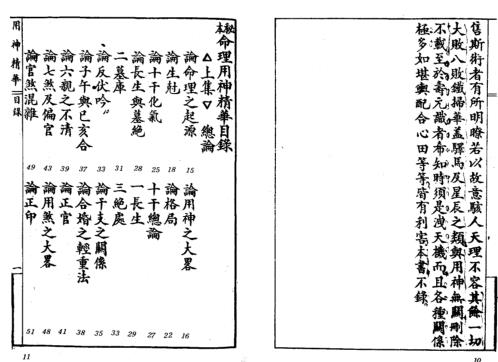 售斯術者有所明瞭若以故意駭人天理不容其餘一切
大敗八敗鐵掃華蓋驛馬及星辰之類與用神無關刪除
不載至於壽元識者布知時須是洩天機而且各種關係
極多如堪輿配合心田等等皆有利害本書不錄
10
秘本命理用神精華目錄
△上集▽ 總論
論命理之起源 15 論用神之大畧 16
論生尅 18 論格局 22
論十干化氣 25 十干總論 27
論長生與墓絕 28 一長生 29
二墓庫 31 三絕處 33
論“反伏吟” 33 論干支之關係 35
論子午與巳亥合 37 論合婚之輕重法 38
論六親之不清 39 論正官 41
論七煞及偏官 43 論用煞之大畧 48
論官煞混雜 49 論正印 51
用神精華 目錄 一
11